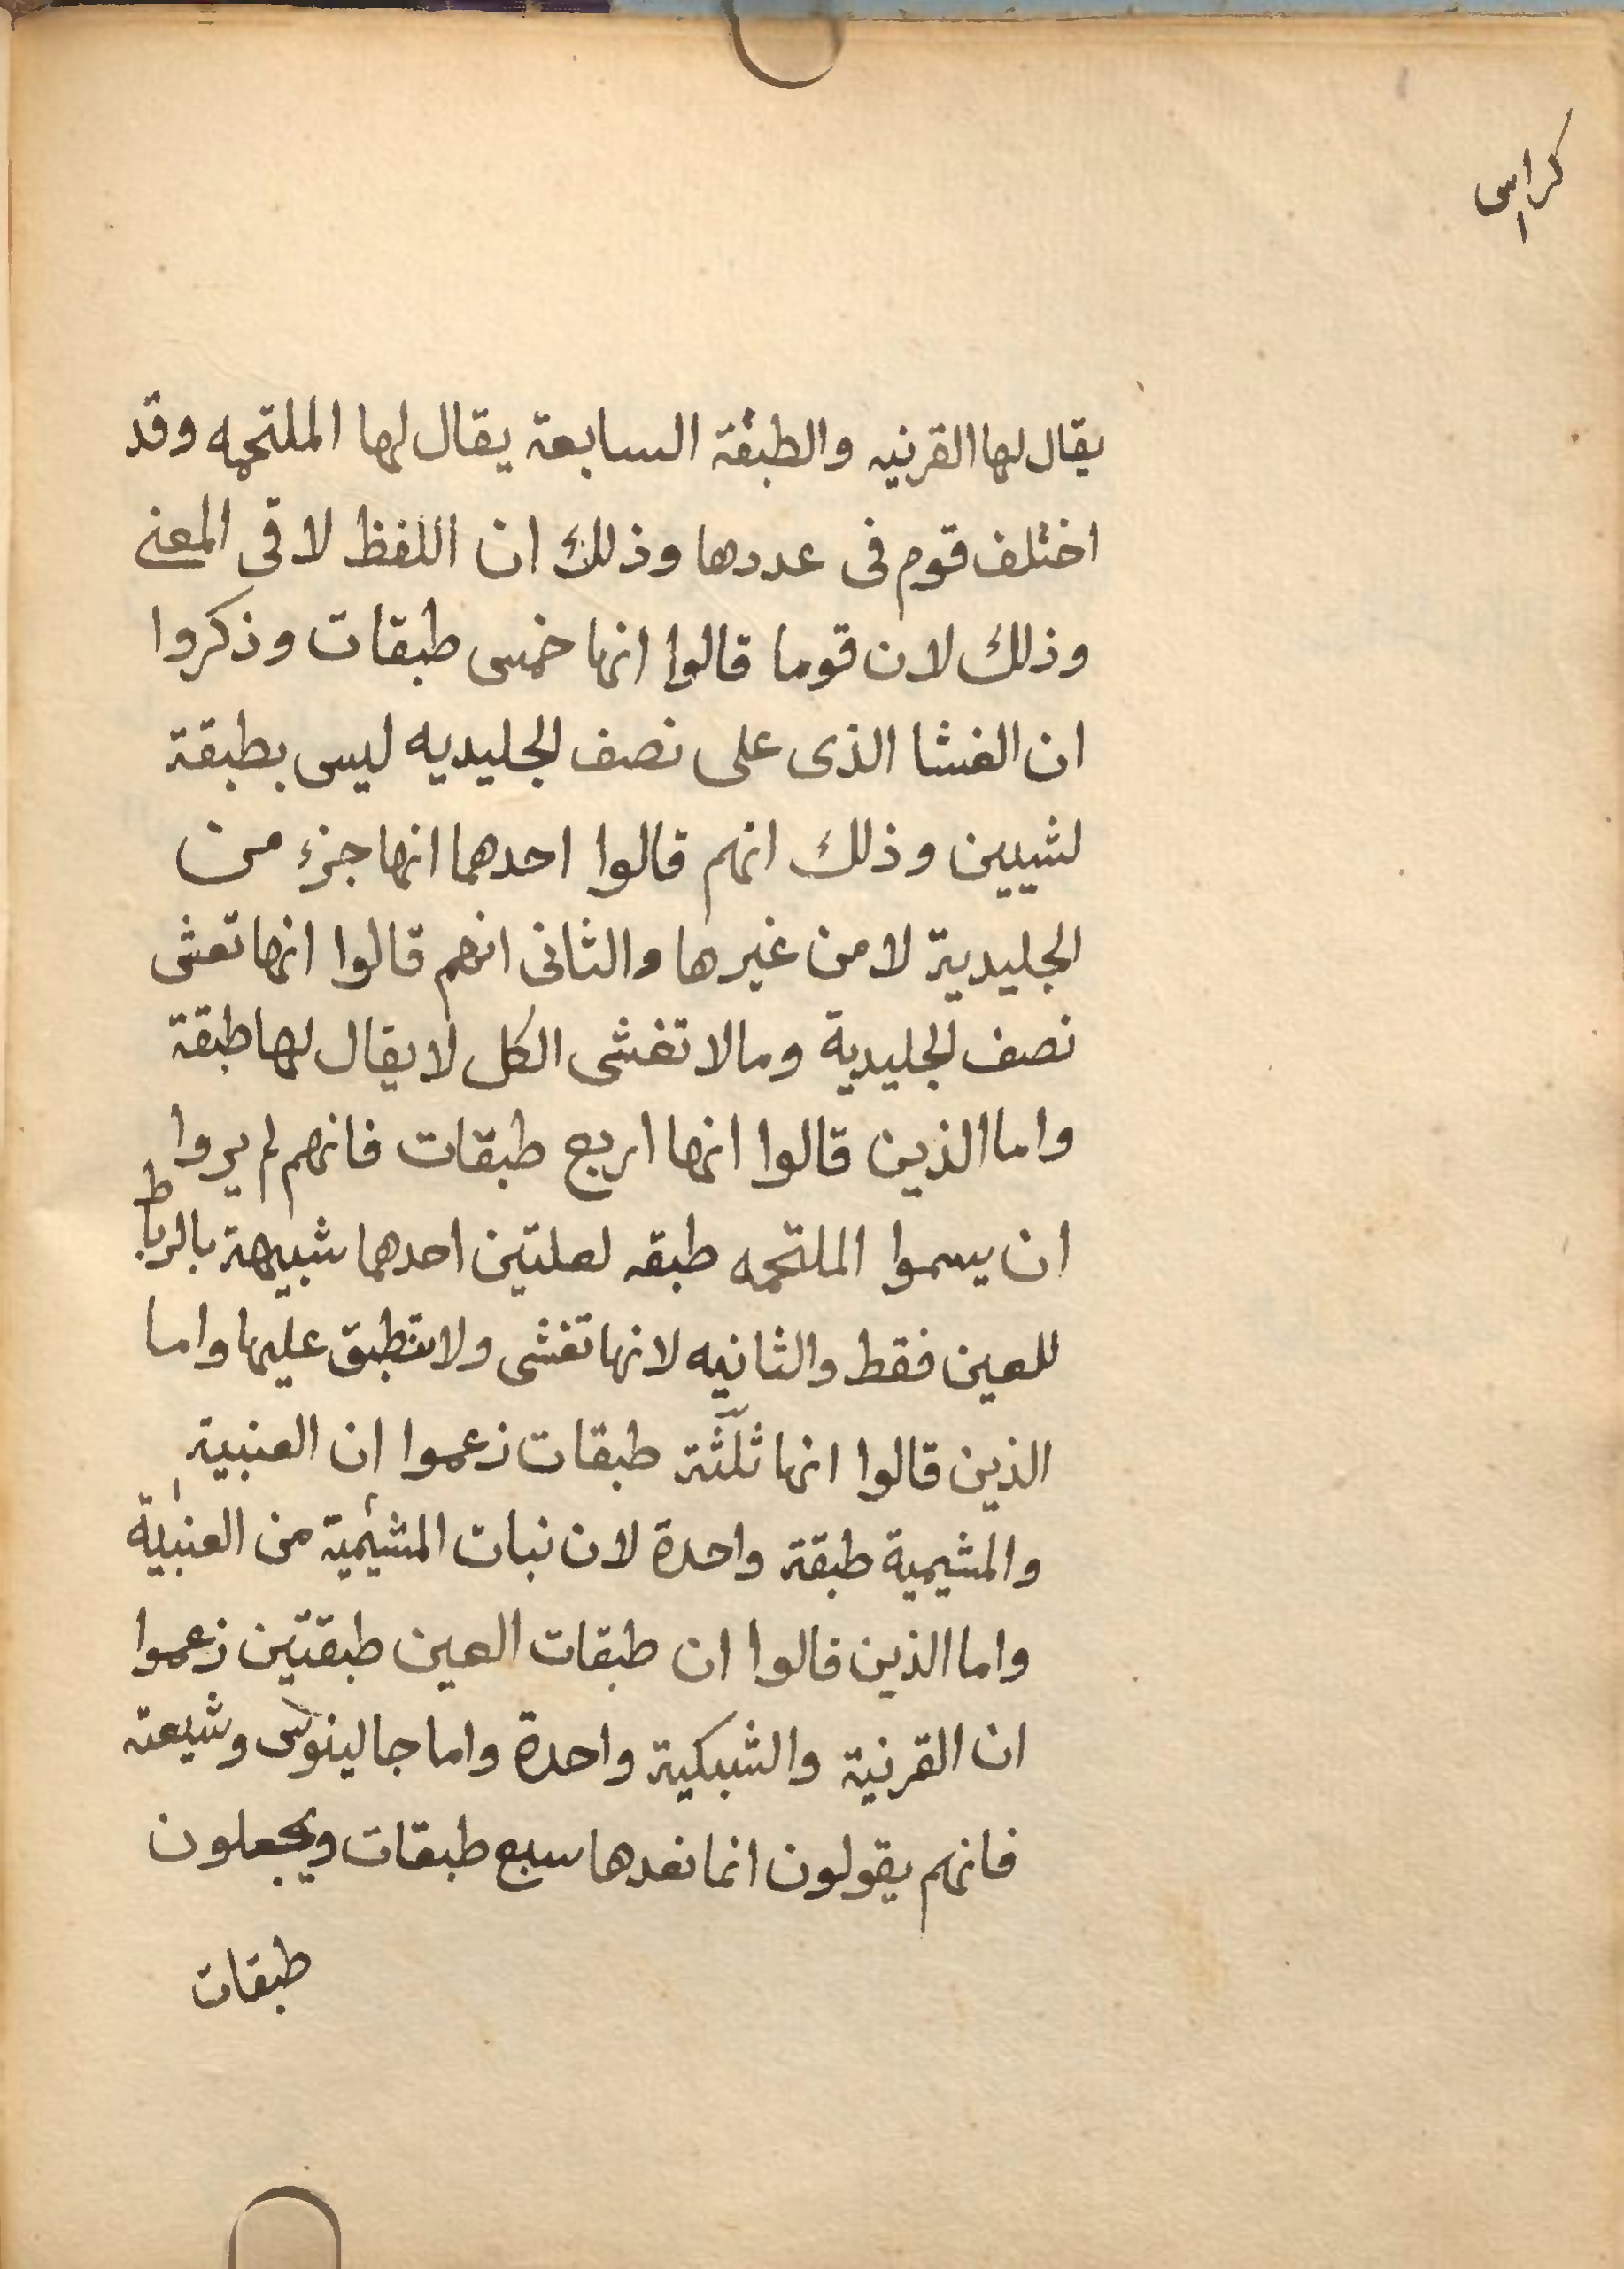 كراس
١
يقال لها القرنيه والطبقة السابعة يقال لها الملتحمه وقد
اختلف قوم فى عددها وذلك ان اللفظ لا فى المعنى
وذلك لان قوما قالوا انها خمس طبقات وذكروا
ان الغشا الذى على نصف الجليديه ليس بطبقة
لشيين وذلك انهم قالوا احدهما انها جزء من
الجليدية لا من غيرها والثانى انهم قالوا انها تغشى
نصف الجليدية ومالا تغشى الكل لا يقال لها طبقة
واما الذين قالوا انها اربع طبقات فانهم لم يروا
ان يسموا الملتحمه طبقه لعلتين احدهما شبيهة بالرباط
للعين فقط والثانيه لانها تغشى ولا تنطبق عليها واما
الذين قالوا انها ثلثة طبقات زعموا ان العنبية
والمشيمية طبقة واحدة لان نبات المشيمية من العنبية
واما الذين قالوا ان طبقات العين طبقتين زعموا
ان القرنية والشبكية واحدة واما جالينوس وشيعته
فانهم يقولون انما نعدها سبع طبقات ويجعلون
طبقات